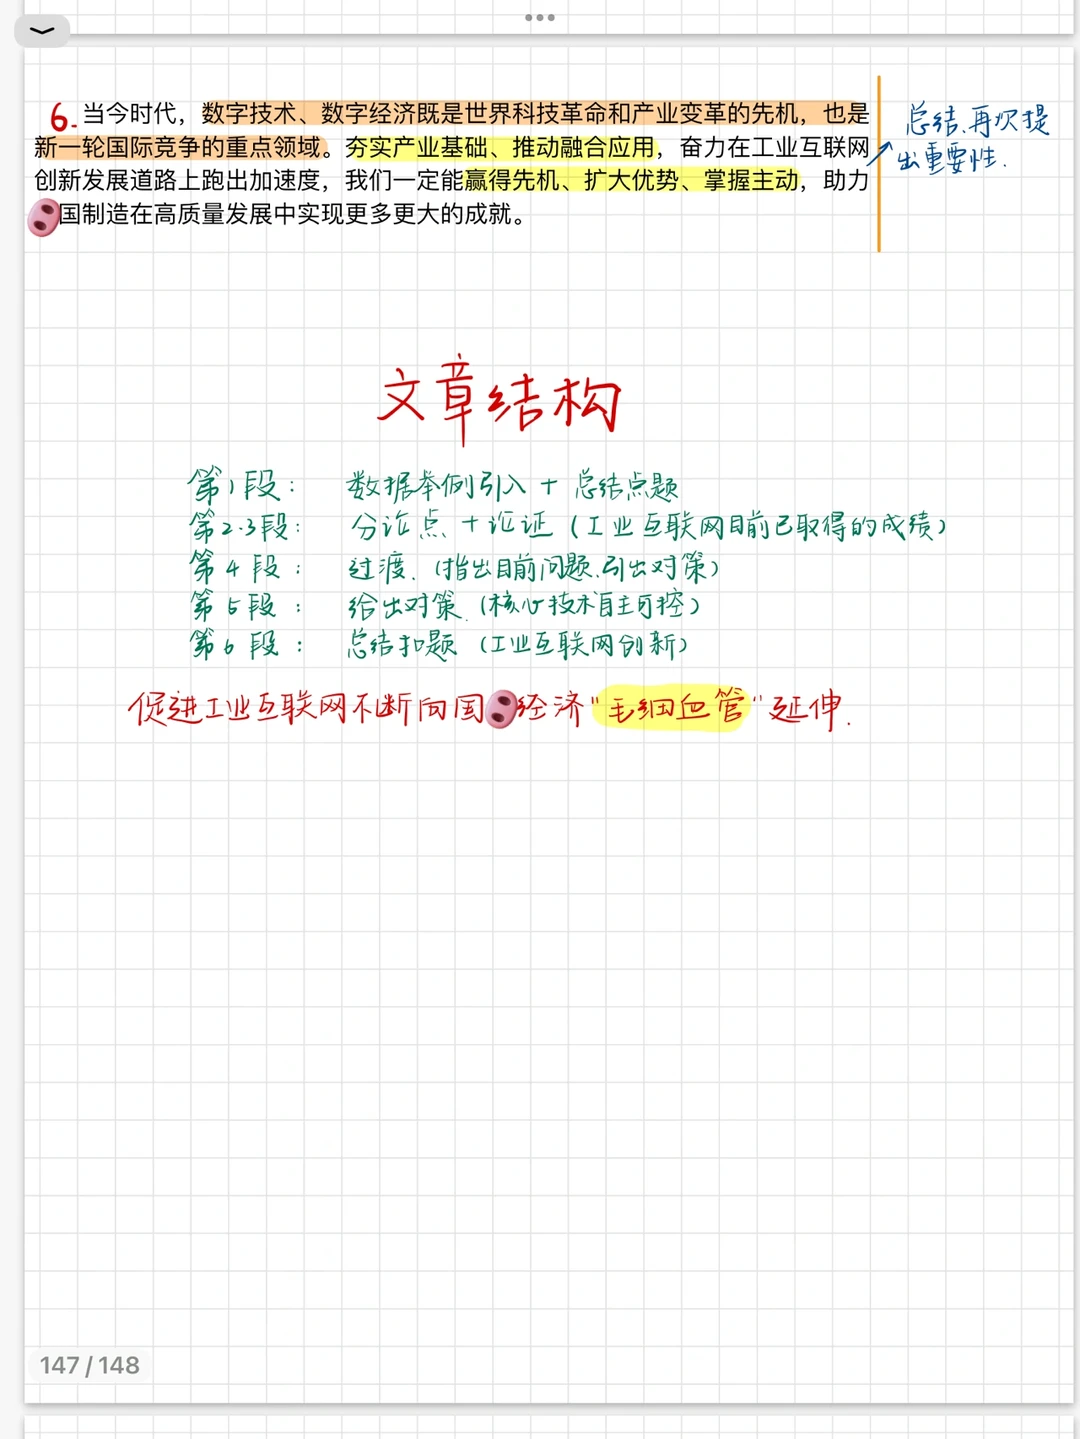 6.当今时代，数字技术、数字经济既是世界科技革命和产业变革的先机，也是
新一轮国际竞争的重点领域。夯实产业基础、推动融合应用，奋力在工业互联网
创新发展道路上跑出加速度，我们一定能赢得先机、扩大优势、掌握主动，助力
国制造在高质量发展中实现更多更大的成就。
总结、再次提
出重要性.
文章结构
第1段： 数据举例引入 + 总结点题
第2.3段： 分论点 + 论证（工业互联网目前已取得的成绩）
第4段： 过渡.（指出目前问题、引出对策）
第5段： 给出对策.（核心技术自主可控）
第6段： 总结扣题（工业互联网创新）
促进工业互联网不断向国经济"毛细血管"延伸.
147 / 148